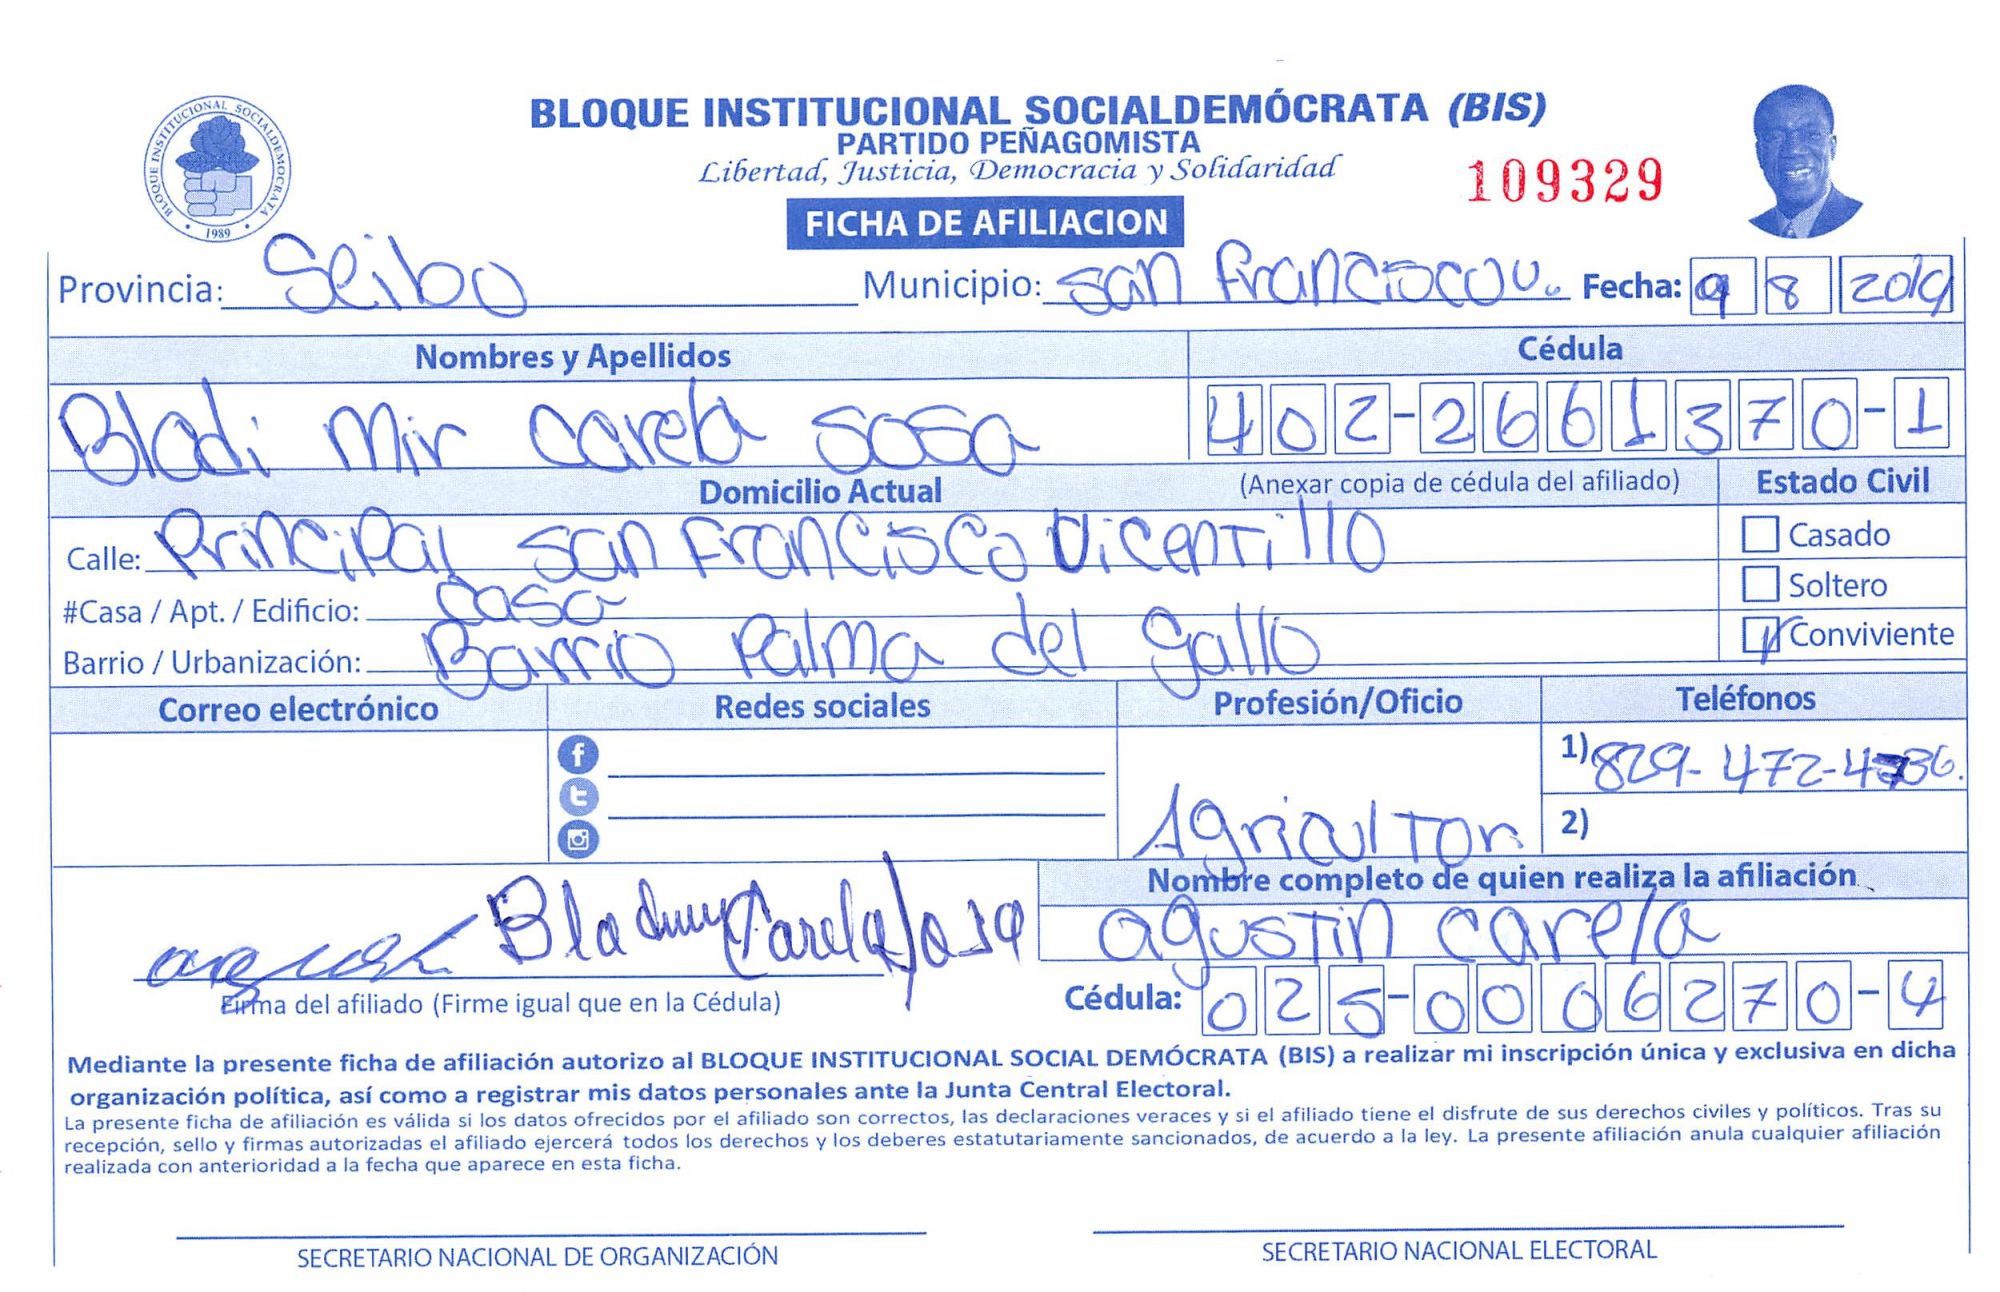 BLOQUE INSTITUCIONAL SOCIALDEMÓCRATA (BIS)
PARTIDO PEÑAGOMISTA
Libertad, Justicia, Democracia y Solidaridad
109329
BLOQUE INSTITUCIONAL SOCIALDEMOCRATA
1989
FICHA DE AFILIACION
Provincia: Seibo Municipio: San Francisco v. Fecha: 9 8 2019
Nombres y Apellidos Cédula
Bladi Mir Carela Sosa 402-2661370-1
Domicilio Actual (Anexar copia de cédula del afiliado) Estado Civil
Calle: Principal San Francisco Vicentillo Casado
#Casa / Apt. / Edificio: Casa Soltero
Barrio / Urbanización: Barrio Palma del gallo Conviviente
Correo electrónico Redes sociales Profesión/Oficio Teléfonos
1) 829-472-4736.
Agricultor 2)
Nombre completo de quien realiza la afiliación
Carela Sosa agustin carela
Firma del afiliado (Firme igual que en la Cédula) Cédula: 025-0006270-4
Mediante la presente ficha de afiliación autorizo al BLOQUE INSTITUCIONAL SOCIAL DEMÓCRATA (BIS) a realizar mi inscripción única y exclusiva en dicha
organización política, así como a registrar mis datos personales ante la Junta Central Electoral.
La presente ficha de afiliación es válida si los datos ofrecidos por el afiliado son correctos, las declaraciones veraces y si el afiliado tiene el disfrute de sus derechos civiles y políticos. Tras su
recepción, sello y firmas autorizadas el afiliado ejercerá todos los derechos y los deberes estatutariamente sancionados, de acuerdo a la ley. La presente afiliación anula cualquier afiliación
realizada con anterioridad a la fecha que aparece en esta ficha.
SECRETARIO NACIONAL DE ORGANIZACIÓN SECRETARIO NACIONAL ELECTORAL